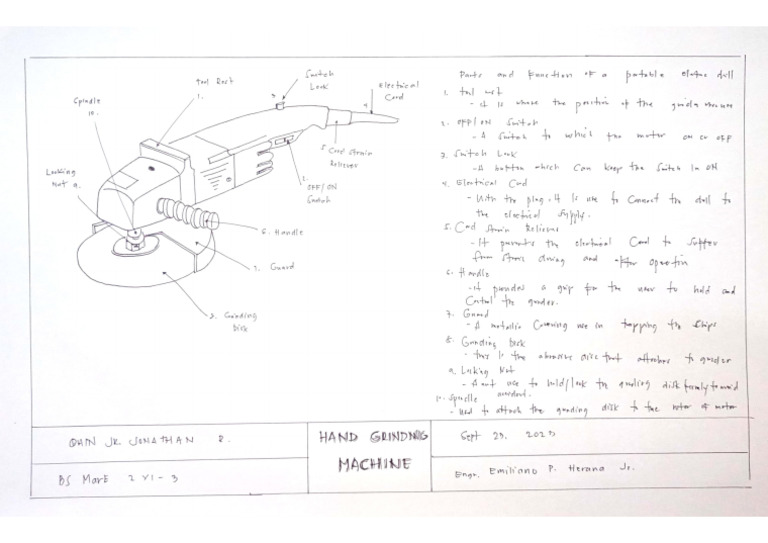 Tool Rest
1.
Switch
Lock
3
Electrical
Cord
4
Spindle
10.
5 Cord Strain
Reliever
Locking
Nut 9.
2.
OFF/ON
Switch
6. Handle
7. Guard
8. Grinding
Disk
Parts and Function OF a portable electric drill
1. tool rest
- It is where the position of the grinder
2. OFF/ON Switch
- A Switch to which the motor on or OFF
3. Switch Lock
- A button which can keep the Switch in ON
4. Electrical Cord
- With the plug, It Is use to Connect the drill to
the electrical supply.
5. Cord Strain Reliever
- It prevents the electrical Cord to suffer
from stress during and after operation
6. Handle
- It provides a grip for the user to hold and
Control the grinder.
7. Guard
- A metallic Covering use in trapping the Chips
8. Grinding Disk
- This Is the abrasive Disc that attaches to grinder
9. Locking Nut
- A nut use to hold/lock the grinding disk firmly to avoid
accident.
10. Spindle
- Used to attach the grinding disk to the rotor of motor
QUIN JR. JONATHAN R.
HAND GRINDING
MACHINE
Sept 23, 2023
BS MarE 2 V1 - 3
Engr. Emiliano P. Herana Jr.